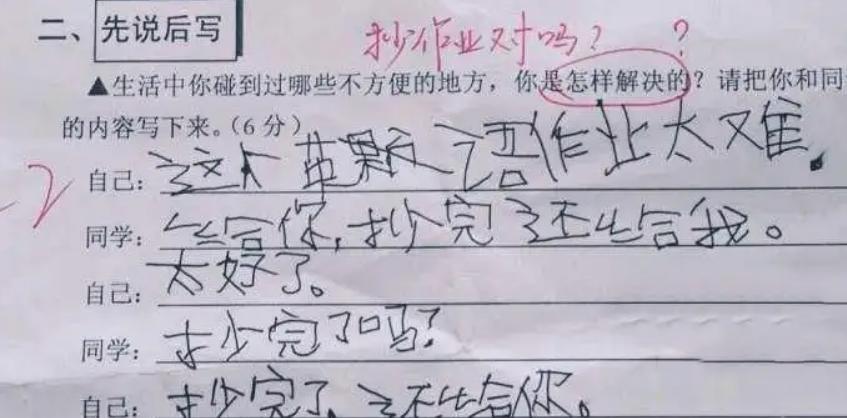 二、先说后写
抄作业对吗? ?
▲生活中你碰到过哪些不方便的地方,你是怎样解决的?请把你和同
的内容写下来。(6分)
-2
自己:这个英颗语作业太难.
同学:给你,抄完了还给我。
自己:太好了。
同学:抄完了吗?
自己:抄完了,还给你。